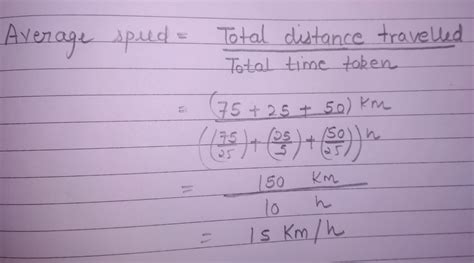 Average speed = Total distance travelled
Total time taken
= (75 + 25 + 50) Km
((75/25) + (25/5) + (50/25)) h
= 150 Km
10 h
= 15 Km/h